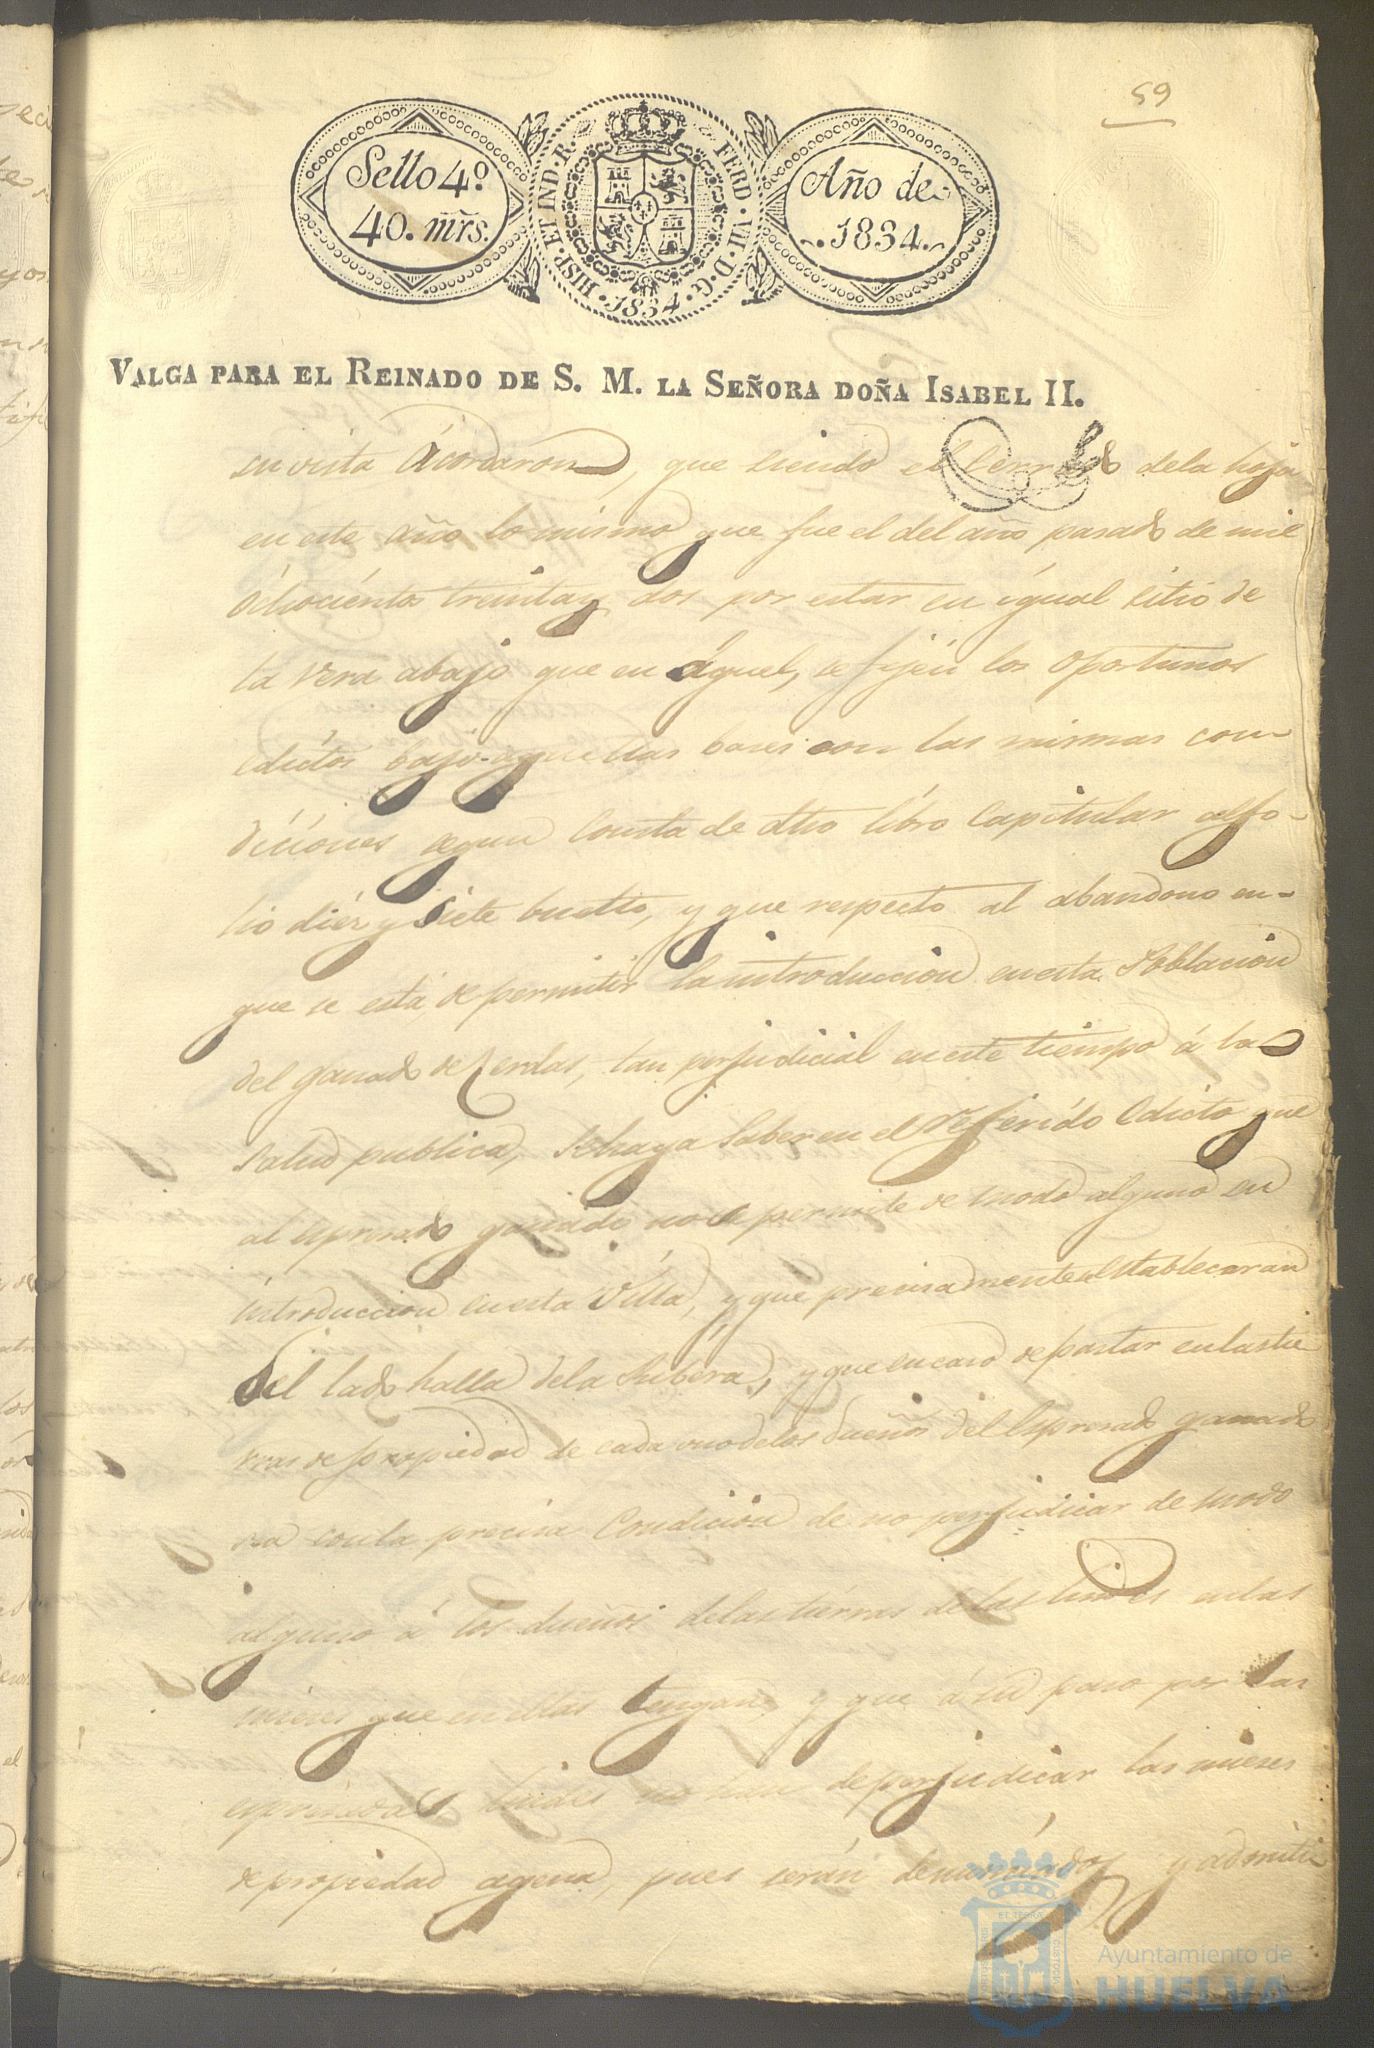 59
Sello 4º
40. mr̃s.
HISP. ET IND. R.
FERD. VII. D. G.
1834
Año de
1834.
VALGA PARA EL REINADO DE S. M. LA SEÑORA DOÑA ISABEL II.
su vista Acordaron, que siendo el Cerrado dela hoja
en este año lo mismo que fue el del año pasado de mil
óchocientos treinta y dos por estar en ígual sitio de
la vera abajo que en áquel, se fijen los oportunos
Edictos bajo aquellas bases con las mismas con-
diciones segun consta de dho libro Capitular al fo-
lio diéz y siete buelto, y que respecto al abandono en-
que se está de permitir la introduccion en esta Poblacion
del ganado de Zerdas, tan perjudicial en este tiempo á la
salud publica, se haga saber en el referido Edicto que
al espresado ganado no se permite de modo alguno su
introduccion en esta Villa, y que precisamente estableceran
del lado halla dela Rivera, y que en caso de pastar en las tie
rras de propiedad de cada uno delos dueños del espresado ganado
sea con la precisa Condicion de no perjudicar de modo
alguno á los dueños delas tierras de las lindes en las
mieses que en ellas tengan, y que á su paso por las
espresadas lindes no han de perjudicar las mieses
de propiedad agena, pues serán denunciados y admiti
EL TERRA
CUSTODIA
Ayuntamiento de
HUELVA